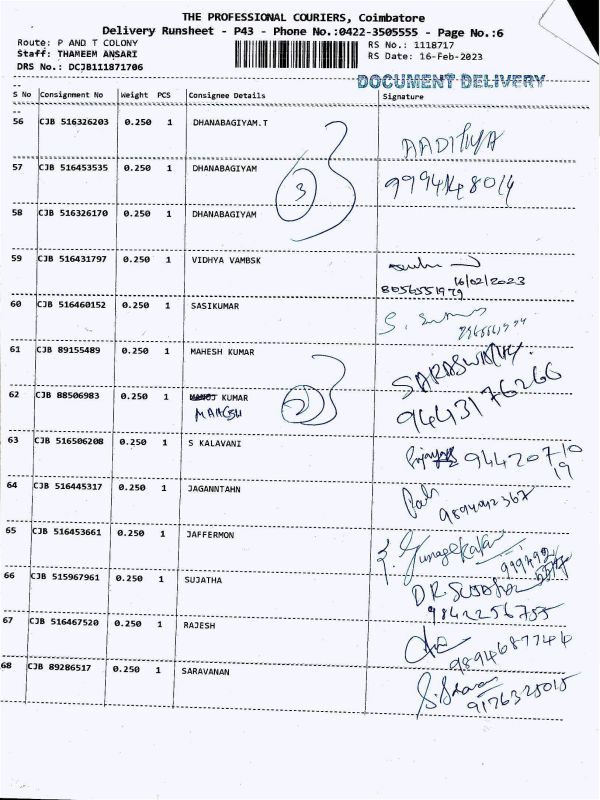 THE PROFESSIONAL COURIERS, Coimbatore
Delivery Runsheet - P43 - Phone No.:0422-3505555 - Page No.:6
Route: P AND T COLONY
Staff: THAMEEM ANSARI
DRS No.: DCJB111871706
RS No.: 1118717
RS Date: 16-Feb-2023
DOCUMENT DELIVERY
S No Consignment No Weight PCS Consignee Details Signature
56 CJB 516326203 0.250 1 DHANABAGIYAM.T AADITIYA
57 CJB 516453535 0.250 1 DHANABAGIYAM
3
58 CJB 516326170 0.250 1 DHANABAGIYAM
59 CJB 516431797 0.250 1 VIDHYA VAMBSK
16/02/2023
8056551979
60 CJB 516460152 0.250 1 SASIKUMAR
61 CJB 89155489 0.250 1 MAHESH KUMAR SARASWATHY.
62 CJB 88506983 0.250 1 MANOJ KUMAR
2
9443176266
63 CJB 516506208 0.250 1 S KALAVANI 94420710
19
64 CJB 516445317 0.250 1 JAGANNTAHN
9894042367
65 CJB 516453661 0.250 1 JAFFERMON
66 CJB 515967961 0.250 1 SUJATHA DR SUJATHA
9842256755
67 CJB 516467520 0.250 1 RAJESH
9894687744
68 CJB 89286517 0.250 1 SARAVANAN
9176325015